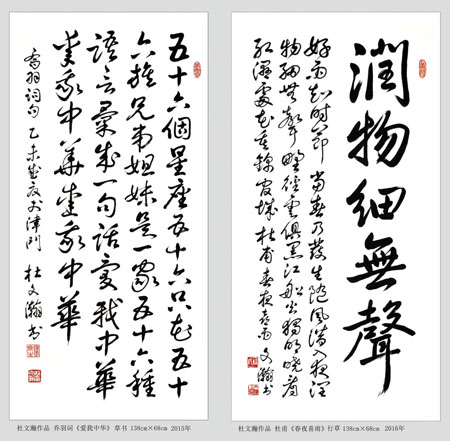 五十六個星座五十六只花五十
六族兄弟姐妹是一家五十六種
語言彙成一句話愛我中華
愛我中華愛我中華
喬羽詞句 乙未盛夏於津門 杜文瀚書
杜文瀚作品 乔羽词《爱我中华》草书 138cm×68cm 2015年
潤物細無聲
好雨知时節當春乃發生随風潛入夜潤
物細無聲野徑雲俱黑江船火獨明曉看
红濕處花重錦官城杜甫春夜喜雨文瀚书
杜文瀚作品 杜甫《春夜喜雨》行草 138cm×68cm 2016年